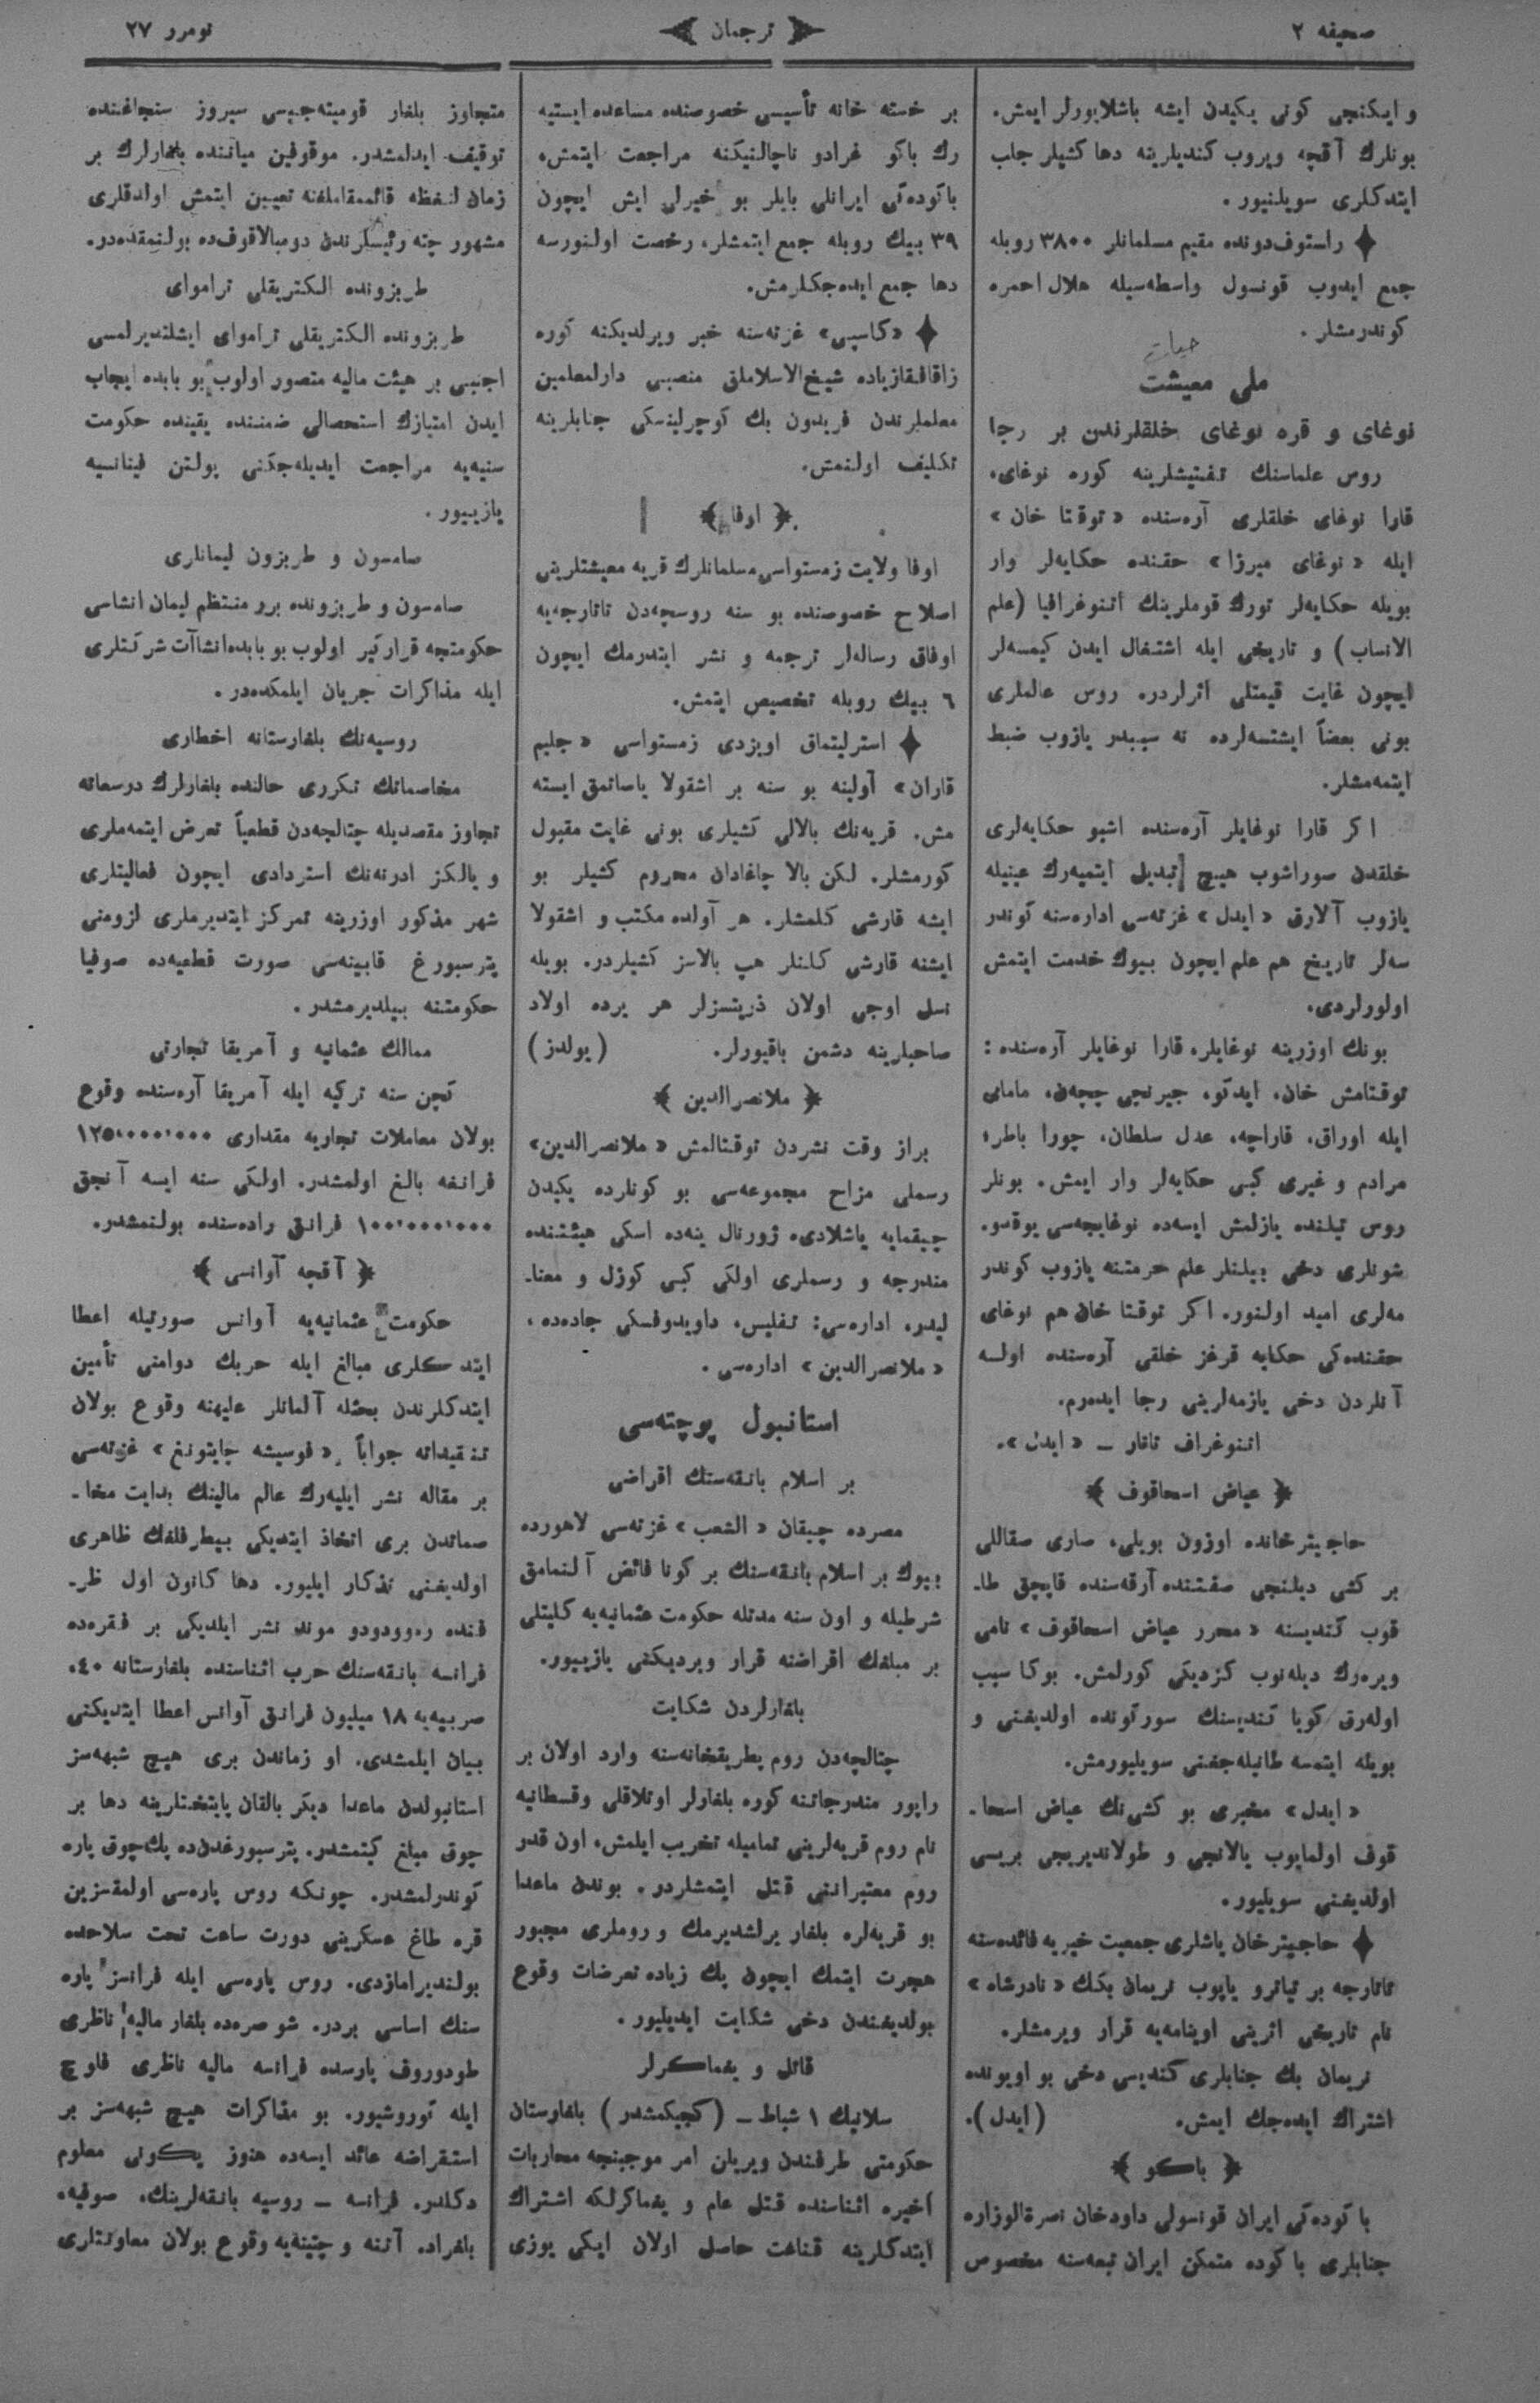 صحيفه ٢
ترجمان
نومرو ٢٧
و ايكنجی كونی يكيدن ايشه باشلايورلر ايمش.
بونلرك آقچه ويروب كنديلرينه دها كشيلر جلب
ايتدكلری سويلنيور.
راستوف‌دونده مقيم مسلمانلر ٣٨٠٠ روبله
جمع ايدوب قونسول واسطه‌سيله هلال احمره
كوندرمشلر.
حيات
ملی معيشت
نوغای و قره نوغای خلقلرندن بر رجا
روس علماسنك تفتيشلرينه كوره نوغای،
قارا نوغای خلقلری آره‌سنده «توقتا خان»
ايله «نوغای ميرزا» حقنده حكايه‌لر وار
بويله حكايه‌لر تورك قوملرينك اتنوغرافيا (علم
الانساب) و تاريخی ايله اشتغال ايدن كيمسه‌لر
ايچون غايت قيمتلی اثرلردر. روس عالملری
بونی بعضاً ايشتسه‌لرده نه سببدر يازوب ضبط
ايتمه‌مشلر.
اكر قارا نوغايلر آره‌سنده اشبو حكايه‌لری
خلقدن سوراشوب هيچ تبديل ايتميه‌رك عينيله
يازوب آلارق «ايدل» غزته‌سی اداره‌سنه كوندر
سه‌لر تاريخ هم علم ايچون بيوك خدمت ايتمش
اولورلردی.
بونك اوزرينه نوغايلر، قارا نوغايلر آره‌سنده:
توقتامش خان، ايدكو، جيرنجی چچه‌ن، مامای
ايله اوراق، قاراچه، عدل سلطان، چورا باطر؛
مرادم و غيری كبی حكايه‌لر وار ايمش. بونلر
روس تيلنده يازلمش ايسه‌ده نوغايچه‌سی يوقدو.
شونلری دخی بيلنلر علم حرمتنه يازوب كوندر
مه‌لری اميد اولنور. اكر توقتا خان هم نوغای
حقنده‌كی حكايه قرغز خلقی آره‌سنده اولسه
آنلردن دخی يازمه‌لرينی رجا ايده‌رم.
اتنوغراف تاتار ـ «ايدل».
عياض اسحاقوف
حاجيترخانده اوزون بويلی، صاری صقاللی
بر كشی ديلنجی صفتنده آرقه‌سنده قاپچق طا-
قوب كنديسنه «محرر عياض اسحاقوف» نامی
ويره‌رك ديله‌نوب كزديكی كورلمش. بوكا سبب
اوله‌رق كويا كنديسنك سورگونده اولديغنی و
بويله ايتمسه طانيله‌جغنی سويليورمش.
«ايدل» مخبری بو كشی‌نك عياض اسحا-
قوف اولمايوب يالانجی و طولانديريجی بريسی
اولديغنی سويليور.
حاجيترخان ياشلری جمعيت خيريه فائده‌سنه
تاتارجه بر تياترو ياپوب نريمان بكك «نادرشاه»
نام تاريخی اثرينی اوينامه‌يه قرار ويرمشلر.
نريمان بك جنابلری كنديسی دخی بو اويونده
اشتراك ايده‌جك ايمش. (ايدل).
باكو
باكوده‌كی ايران قونسولی داودخان نصرةالوزاره
جنابلری باكوده متمكن ايران تبعه‌سنه مخصوص
بر خسته خانه تأسيسی خصوصنده مساعده ايستيه
رك باكو غرادو ناچالنيكنه مراجعت ايتمش،
باكوده‌كی ايرانلی بايلر بو خيرلی ايش ايچون
٣٩ بيك روبله جمع ايتمشلر، رخصت اولنورسه
دها جمع ايده‌جكلرمش.
«كاسپی» غزته‌سنه خبر ويرلديكنه كوره
زاقافقازياده شيخ‌الاسلاملق منصبی دارلمعلمين
معلملرندن فريدون بك كوچرلينسكی جنابلرينه
تكليف اولنمش.
اوفا
اوفا ولايت زمستواسی مسلمانلرك قريه معيشتلرينی
اصلاح خصوصنده بو سنه روسچه‌دن تاتارجه‌يه
اوفاق رساله‌لر ترجمه و نشر ايتدرمك ايچون
٦ بيك روبله تخصيص ايتمش.
استرليتماق اويزدی زمستواسی «جليم
قاران» آولينه بو سنه بر اشقولا ياصاتمق ايسته
مش. قريه‌نك بالالی كشيلری بونی غايت مقبول
كورمشلر. لكن بالا چاغادان محروم كشيلر بو
ايشه قارشی كلمشلر. هر آولده مكتب و اشقولا
ايشنه قارشی كلنلر هپ بالاسز كشيلردر. بويله
نسل اوجی اولان ذريتسزلر هر يرده اولاد
صاحبلرينه دشمن باقيورلر. (يولدز)
ملانصرالدين
براز وقت نشردن توقتالمش «ملانصرالدين»
رسملی مزاح مجموعه‌سی بو كونلرده يكيدن
چيقمايه باشلادی، ژورنال ينه‌ده اسكی هيئتنده
مندرجه و رسملری اولكی كبی كوزل و معنا-
ليدر، اداره‌سی: تفليس، داويدوفسكی جاده‌ده،
«ملانصرالدين» اداره‌سی.
استانبول پوچته‌سی
بر اسلام بانقه‌سنك اقراضی
مصرده چيقان «الشعب» غزته‌سی لاهورده
بيوك بر اسلام بانقه‌سنك بر كونا فائض آلنمامق
شرطيله و اون سنه مدتله حكومت عثمانيه‌يه كليتلی
بر مبلغك اقراضنه قرار ويرديكنی يازييور.
بلغارلردن شكايت
چتالجه‌دن روم پطريقخانه‌سنه وارد اولان بر
راپور مندرجاتنه كوره بلغارلر اوتلاقلی وقسطانيه
نام روم قريه‌لرينی تماميله تخريب ايلمش، اون قدر
روم معتبراننی قتل ايتمشلردر. بوندن ماعدا
بو قريه‌لره بلغار يرلشديرمك و روملری مجبور
هجرت ايتمك ايچون پك زياده تعرضات وقوع
بولديغندن دخی شكايت ايديليور.
قاتل و يغماكرلر
سلانيك ١ شباط ـ (كچيكمشدر) بلغارستان
حكومتی طرفندن ويريلن امر موجبنجه محاربات
اخيره اثناسنده قتل عام و يغماكرلكه اشتراك
ايتدكلرينه قناعت حاصل اولان ايكی يوزی
متجاوز بلغار قوميته‌جيسی سيروز سنجاغنده
توقيف ايدلمشدر. موقوفين مياننده بلغارلرك بر
زمان لنغظه قائممقاملغنه تعيين ايتمش اولدقلری
مشهور چته رئيسلرندن دومبالاقوف‌ده بولنمقده‌در.
طربزونده الكتريقلی ترامواى
طربزونده الكتريقلی ترامواى ايشلتديرلمسی
اجنبی بر هيئت ماليه متصور اولوب بو بابده ايجاب
ايدن امتيازك استحصالی ضمننده يقينده حكومت
سنيه‌يه مراجعت ايديله‌جكنی بولتن فينانسيه
يازييور.
صامسون و طربزون ليمانلری
صامسون و طربزونده برر منتظم ليمان انشاسی
حكومتجه قراركير اولوب بو بابده‌انشاآت شركتلری
ايله مذاكرات جريان ايلمكده‌در.
روسيه‌نك بلغارستانه اخطاری
مخاصماتك تكرری حالنده بلغارلرك درسعاته
تجاوز مقصديله چتالجه‌دن قطعياً تعرض ايتمه‌ملری
و يالكز ادرنه‌نك استردادی ايچون فعاليتلری
شهر مذكور اوزرينه تمركز ايتديرملری لزومنی
پترسبورغ قابينه‌سی صورت قطعيه‌ده صوفيا
حكومتنه بيلديرمشدر.
ممالك عثمانيه و آمريقا تجارتی
كچن سنه تركيه ايله آمريقا آره‌سنده وقوع
بولان معاملات تجاريه مقداری ١٢٥،٠٠٠،٠٠٠
فرانغه بالغ اولمشدر. اولكی سنه ايسه آنجق
١٠٠،٠٠٠،٠٠٠ فرانق راده‌سنده بولنمشدر.
آقچه آوانسی
حكومت عثمانيه‌يه آوانس صورتيله اعطا
ايتدكلری مبالغ ايله حربك دوامنی تأمين
ايتدكلرندن بحثله آلمانلر عليهنه وقوع بولان
تنقيداته جواباً «فوسيشه چايتونغ» غزته‌سی
بر مقاله نشر ايليه‌رك عالم مالينك بدايت مخا-
صماتدن بری اتخاذ ايتديكی بيطرفلغك ظاهری
اولديغنی تذكار ايليور. دها كانون اول ظر-
فنده ره‌وودودو موند نشر ايلديكی بر فقره‌ده
فرانسه بانقه‌سنك حرب اثناسنده بلغارستانه ٤٠،
صربيه‌يه ١٨ ميليون فرانق آوانس اعطا ايتديكنی
بيان ايلمشدی. او زماندن بری هيچ شبهه‌سز
استانبولدن ماعدا ديكر بالقان پايتختلرينه دها بر
چوق مبلغ كيتمشدر. پترسبورغدن‌ده پك‌چوق پاره
كوندرلمشدر. چونكه روس پاره‌سی اولمقسزين
قره طاغ عسكرينی دورت ساعت تحت سلاحده
بولنديرامازدی. روس پاره‌سی ايله فرانسز پاره
سنك اساسی بردر. شو صره‌ده بلغار ماليه ناظری
طودوروف پارسده فرانسه ماليه ناظری قلوچ
ايله كوروشيور. بو مذاكرات هيچ شبهه‌سز بر
استقراضه عائد ايسه‌ده هنوز يكونی معلوم
دكلدر. فرانسه ـ روسيه بانقه‌لرينك، صوفيه،
بلغراد. آتنه و چتينه‌يه وقوع بولان معاونتلری